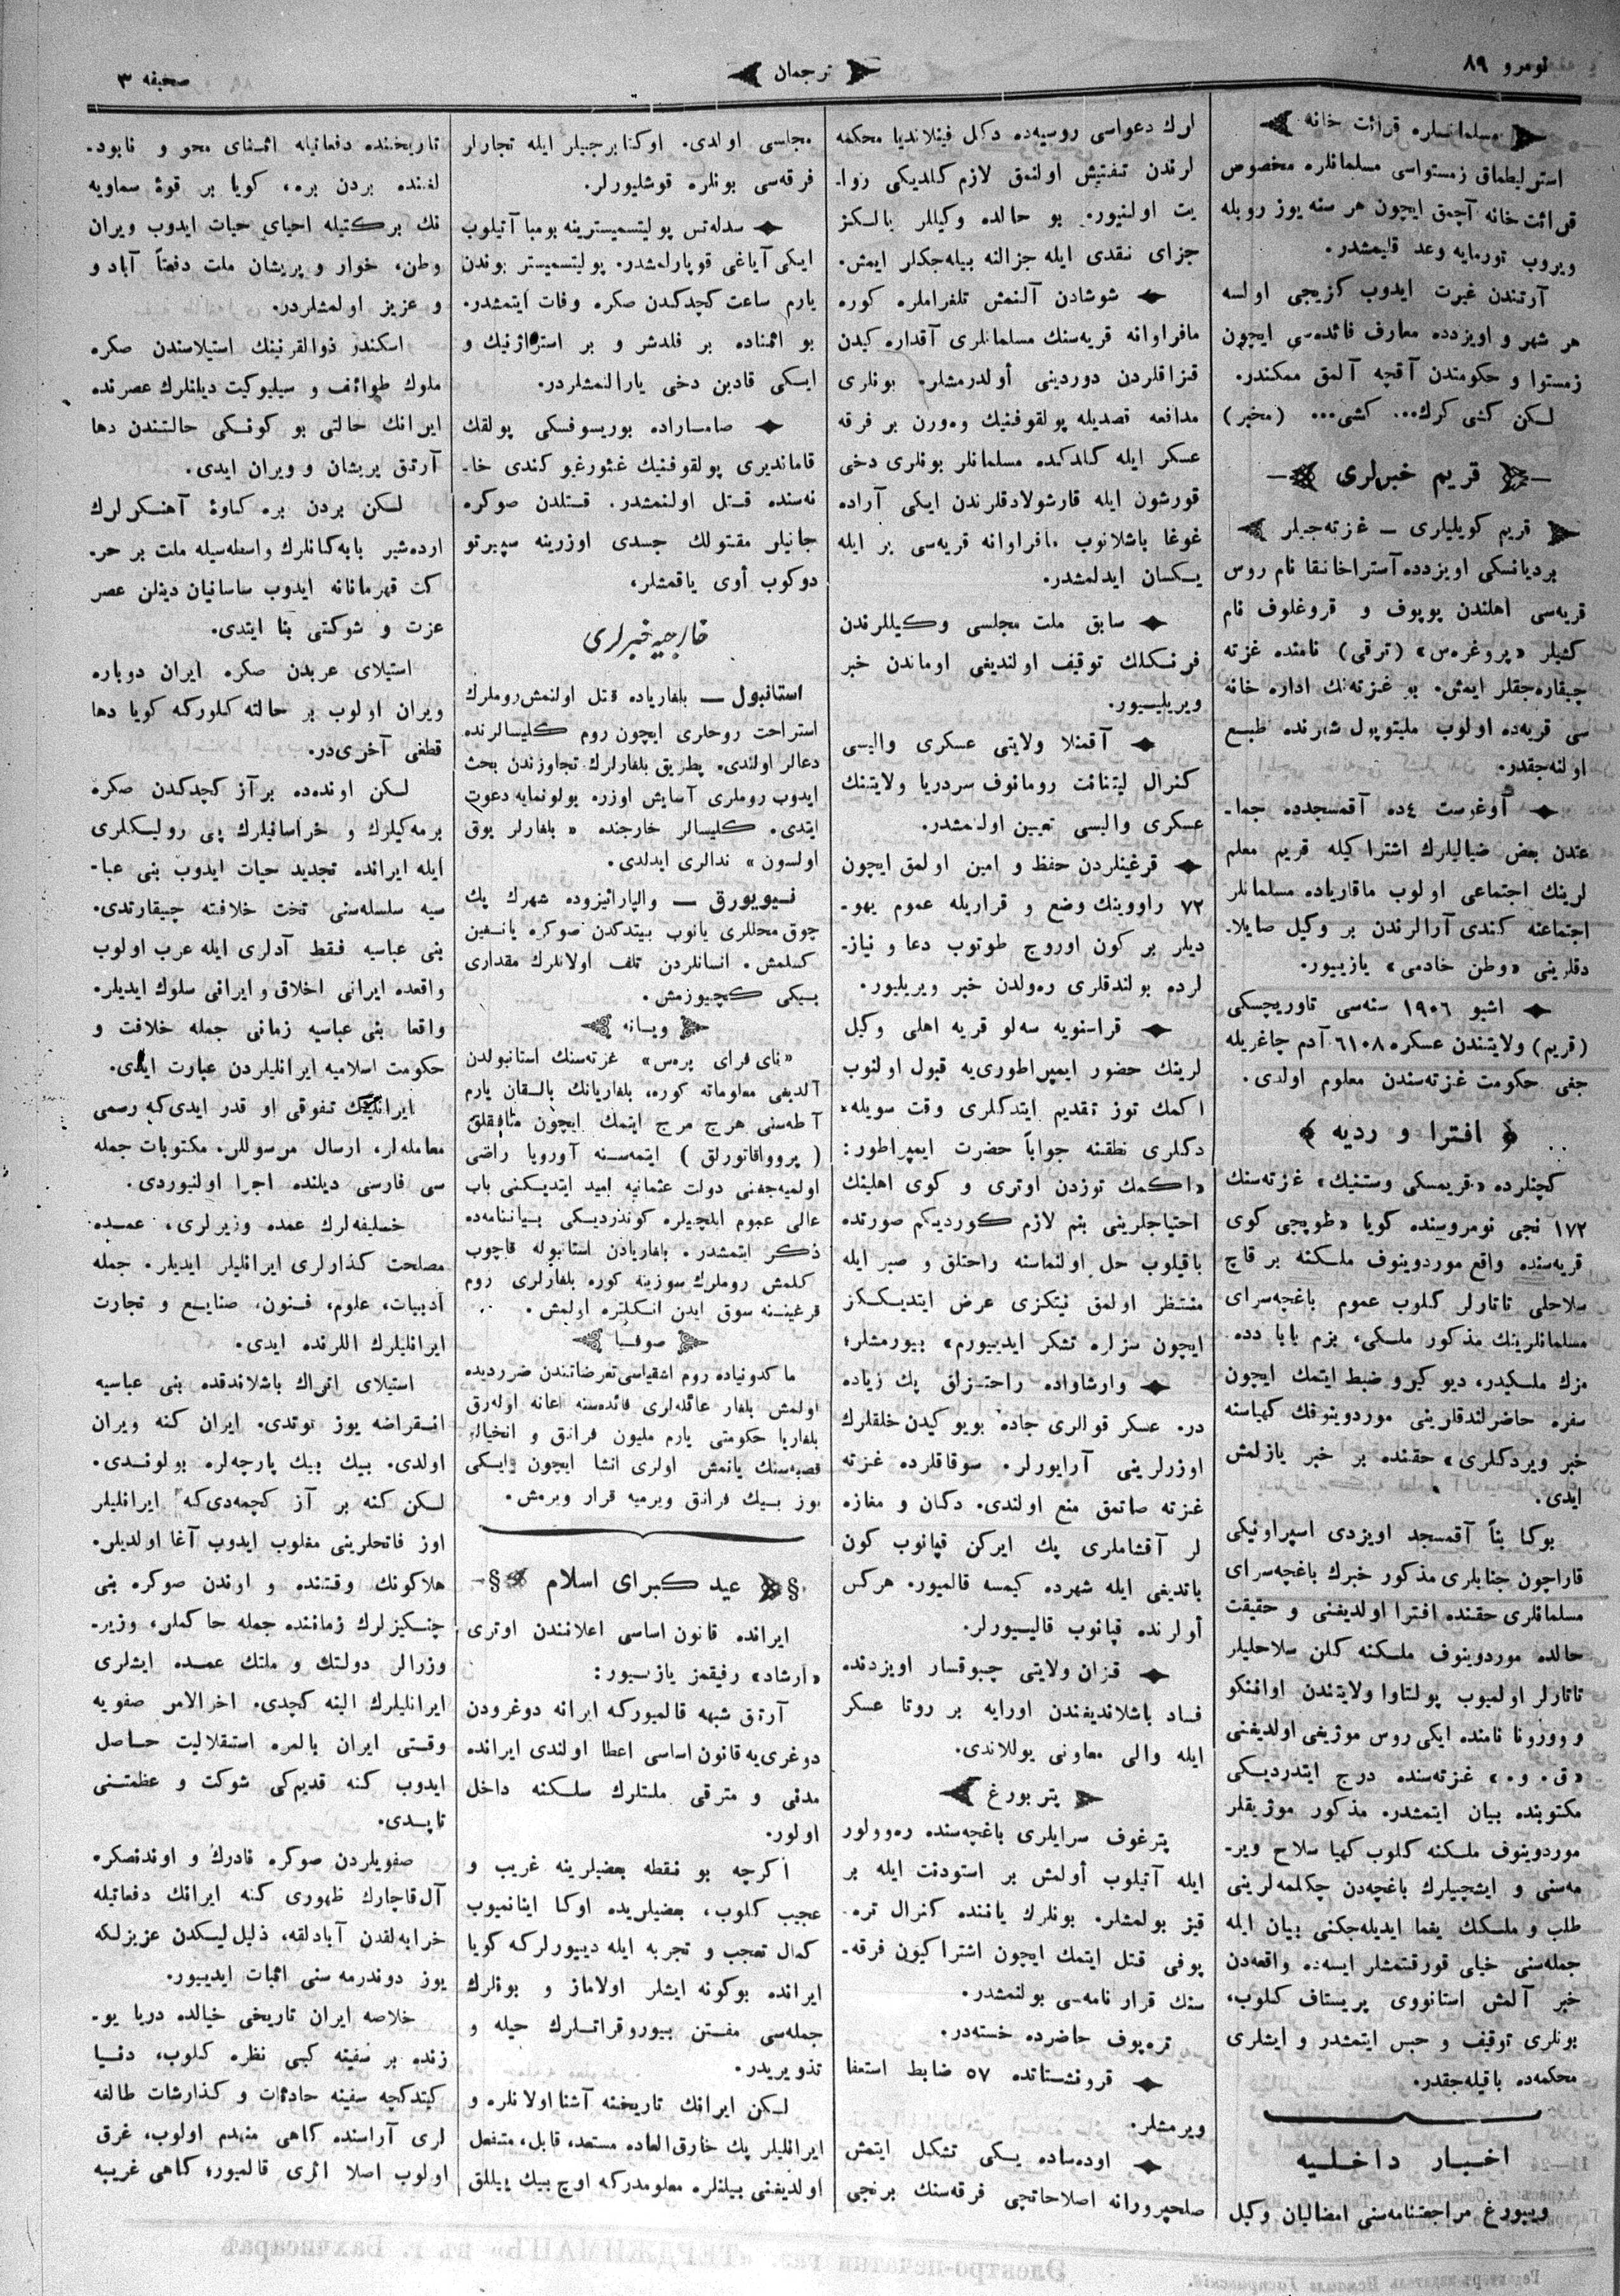 نومرو ٨٩
ترجمان
صحيفه ٣
مسلمانلره قرائت خانه
استرليطماق زمستواسى مسلمانلره مخصوص
قرائت خانه آچمق ايچون هر سنه يوز روبله
ويروب تورمايه وعد قليمشدر.
آرتندن غيرت ايدوب كزيجى اولسه
هر شهر و اويزدده معارف فائده‌سى ايچون
زمستوا و حكومتدن آقچه آلمق ممكندر.
لكن كشى كرك... كشى... (مخبر)
قريم خبرلرى
قريم كويليلرى ــ غزته‌جيلر
برديانسكى اويزدده آستراخانقا نام روس
قريه‌سى اهلندن پوپوف و قروغلوف نام
كشيلر «پروغره‌س» (ترقى) نامنده غزته
چيقاره‌جقلر ايمش. بو غزته‌نك اداره خانه
سى قريه‌ده اولوب مليتوپول شهرنده طبع
اولنه‌جقدر.
آوغوست ٤ده آقمسجدده جما-
عتدن بعض ضياليلرك اشتراكيله قريم معلم
لرينك اجتماعى اولوب ماقارياده مسلمانلر
اجتماعنه كندى آرالرندن بر وكيل صايلا-
دقلرينى «وطن خادمى» يازييور.
اشبو ١٩٠٦ سنه‌سى تاوريچسكى
(قريم) ولايتندن عسكره ٦١٠٨ آدم چاغريله
جغى حكومت غزته‌سندن معلوم اولدى.
افترا و رديه
كچنلرده «قريمسكى وستنيك» غزته‌سنك
١٧٢ نجى نومروسنده كويا «طوپچى كوى
قريه‌سنده واقع موردوينوف ملكنه بر قاچ
سلاحلى تاتارلر كلوب عموم باغچه‌سراى
مسلمانلرينك مذكور ملكى، بزم بابا دده.
مزك ملكيدر، ديو كيرو ضبط ايتمك ايچون
سفره حاضرلندقلرينى موردوينوفك كهياسنه
خبر ويردكلرى» حقنده بر خبر يازلمش
ايدى.
بوكا بناً آقمسجد اويزدى اسپراونيكى
قاراچون جنابلرى مذكور خبرك باغچه‌سراى
مسلمانلرى حقنده افترا اولديغنى و حقيقت
حالده موردوينوف ملكنه كلن سلاحليلر
تاتارلر اولميوب پولتاوا ولايتندن اوانكو
و وورونا نامنده ايكى روس موژيغى اولديغنى
«ق. و.» غزته‌سنده درج ايتدرديكى
مكتوبنده بيان ايتمشدر. مذكور موژيقلر
موردوينوف ملكنه كلوب كهيا سلاح وير-
مه‌سنى و ايشچيلرك باغچه‌دن چكلمه‌لرينى
طلب و ملكك يغما ايديله‌جكنى بيان ايله
جمله‌سنى خيلى قورقتمشلر ايسه‌ده واقعه‌دن
خبر آلمش استانووى پريستاف كلوب،
بونلرى توقيف و حبس ايتمشدر و ايشلرى
محكمه‌ده باقيله‌جقدر.
اخبار داخليه
ويبورغ مراجعتنامه‌سنى امضاليان وكيل
لرك دعواسى روسيه‌ده دكل فينلانديا محكمه
لرندن تفتيش اولنمق لازم كلديكى روا-
يت اولنيور. بو حالده وكيللر يالكز
جزاى نقدى ايله جزالنه بيله‌جكلر ايمش.
شوشادن آلنمش تلغراملره كوره
مافراوانه قريه‌سنك مسلمانلرى آقداره كيدن
قزاقلردن دوردينى أولدرمشلر. بونلرى
مدافعه قصديله پولقوفنيك وه‌ورن بر فرقه
عسكر ايله كلدكده مسلمانلر بونلرى دخى
قورشون ايله قارشولادقلرندن ايكى آراده
غوغا باشلانوب مافراوانه قريه‌سى ير ايله
يكسان ايدلمشدر.
سابق ملت مجلسى وكيللرندن
فرنكلك توقيف اولنديغى اوماندن خبر
ويريليور.
آقمنلا ولايتى عسكرى واليسى
كنرال ليتنانت رومانوف سردريا ولايتنك
عسكرى واليسى تعيين اولنمشدر.
قرغينلردن حفظ و امين اولمق ايچون
٧٢ راووينك وضع و قراريله عموم يهو-
ديلر بر كون اوروج طوتوب دعا و نياز-
لرده بولندقلرى ره‌ولدن خبر ويريليور.
قراسنويه سه‌لو قريه اهلى وكيل
لرينك حضور ايمپراطورى‌يه قبول اولنوب
اكمك توز تقديم ايتدكلرى وقت سويله.
دكلرى نطقنه جواباً حضرت ايمپراطور:
«اكمك توزدن اوترى و كوى اهلينك
احتياجلرينى بنم لازم كورديكم صورتده
باقيلوب حل اولنماسنه راحتلق و صبر ايله
منتظر اولمق نيتكزى عرض ايتديككز
ايچون سزلره تشكر ايدييورم» بيورمشلر؛
وارشاواده راحتسزلق پك زياده
در. عسكر قوللرى جاده بويو كيدن خلقلرك
اوزرلرينى آرايورلر. سوقاقلرده غزته
غزته صاتمق منع اولندى. دكان و مغازه
لر آقشاملرى پك ايركن قپانوب كون
باتديغى ايله شهرده كيمسه قالميور. هركس
أولرنده قپانوب قاليسيورلر.
قزان ولايتى چبوقسار اويزدنده
فساد باشلانديغندن اورايه بر روتا عسكر
ايله والى معاونى يوللاندى.
پتربورغ
پترغوف سرايلرى باغچه‌سنده ره‌وولور
ايله آتيلوب أولمش بر استودنت ايله بر
قيز بولمشلر. بونلرك ياننده كنرال تره-
پوفى قتل ايتمك ايچون اشتراكيون فرقه-
سنك قرار نامه‌سى بولنمشدر.
تره‌پوف حاضرده خسته‌در.
قرونشتاتده ٥٧ ضابط استعفا
ويرمشلر.
اوده‌ساده يكى تشكل ايتمش
صلحپرورانه اصلاحاتچى فرقه‌سنك برنجى
مجلسى اولدى. اوكتابرجيلر ايله تجارلر
فرقه‌سى بونلره قوشليورلر.
سدله‌تس پوليتسميسترينه بومبا آتيلوب
ايكى آياغى قوپارلمشدر. پوليتسميستر بوندن
يارم ساعت كچدكدن صكره وفات ايتمشدر.
بو اثناده بر فلدشر و بر استراژنيك و
ايكى قادين دخى يارالنمشلردر.
صامساراده بوريسوفسكى پولقك
قاماندیرى پولقوفنيك غئورغيو كندى خا-
نه‌سنده قتل اولنمشدر. قتلدن صوكره
جانيلر مقتولك جسدى اوزرينه سپيرتو
دوكوب أوى ياقمشلر.
خارجيه خبرلرى
استانبول ــ بلغارياده قتل اولنمش روملرك
استراحت روحلرى ايچون روم كليسالرنده
دعالر اولندى. پطريق بلغارلرك تجاوزندن بحث
ايدوب روملرى آسايش اوزره بولونمايه دعوت
ايتدى. كليسالر خارجنده « بلغارلر يوق
اولسون » ندالرى ايدلدى.
نيويورق ــ والپارائيزوده شهرك پك
چوق محللرى يانوب بيتدكدن صوكره يانغين
كسلمش. انسانلردن تلف اولانلرك مقدارى
بيكى كچيوزمش.
ويانه
«ناى فراى پره‌س» غزته‌سنك استانبولدن
آلديغى معلوماته كوره، بلغاريانك بالقان يارم
آطه‌سنى هرج مرج ايتمك ايچون منافقلق
( پرووافاتورلق ) ايتمه‌سنه آوروپا راضى
اولميه‌جغنى دولت عثمانيه اميد ايتديكنى باب
عالى عموم ايلچيلره كوندرديكى بياننامه‌ده
ذكر ايتمشدر. بلغاريادن استانبوله قاچوب
كلمش روملرك سوزينه كوره بلغارلرى روم
قرغيننه سوق ايدن انكلتره اولمش.
صوفيا
ماكدونياده روم اشقياسى تعرضاتندن ضررديده
اولمش بلغار عائله‌لرى فائده‌سنه اعانه اوله‌رق
بلغاريا حكومتى يارم مليون فرانق و انخيالو
قصبه‌سنك يانمش اولرى انشا ايچون ايكى
يوز بيك فرانق ويرميه قرار ويرمش.
عيد كبراى اسلام
ايرانده قانون اساسى اعلانندن اوترى
«ارشاد» رفيقمز يازييور:
آرتق شبهه قالميوركه ايرانه دوغرودن
دوغرى‌يه قانون اساسى اعطا اولندى ايرانده
مدنى و مترقى ملتلرك سلكنه داخل
اولور.
اكرچه بو نقطه بعضيلرينه غريب و
عجيب كلوب، بعضيلريده اوكا اينانميوب
كمال تعجب و تجربه ايله دييورلركه كويا
ايرانده بوكونه ايشلر اولاماز و بونلرك
جمله‌سى مفتن بيوروقراتلرك حيله و
تذويريدر.
لكن ايرانك تاريخنه آشنا اولانلره و
ايرانليلر پك خارق العاده مستعد، قابل، متنفعل
اولديغنى بيلنلره معلومدركه اوچ بيك ييللق
تاريخنده دفعاتيله اثناى محو و نابود-
لغنده بردن بره، كويا بر قوۀ سماويه
نك بركتيله احياى حيات ايدوب ويران
وطن، خوار و پريشان ملت دفعتاً آباد و
و عزيز اولمشلردر.
اسكندر ذوالقرنينك استيلاسندن صكره
ملوك طوائف و سيليوكيت دينلنلرك عصرنده
ايرانك حالتى بو كونكى حالتندن دها
آرتق پريشان و ويران ايدى.
لكن بردن بره كاوۀ آهنگرلرك
ارده‌شير بابه‌كانلرك واسطه‌سيله ملت بر حر-
كت قهرمانانه ايدوب ساسانيان دينلن عصر
عزت و شوكتى بنا ايتدى.
استيلاى عربدن صكره ايران دوباره
ويران اولوب بر حالته كلوركه كويا دها
قطغى آخرى‌در.
لكن اونده‌ده برآز كچدكدن صكره
برمه‌كيلرك و خراسانيلرك پى روليكلرى
ايله ايرانده تجديد حيات ايدوب بنى عبا-
سيه سلسله‌سنى تخت خلافته چيقارتدى.
بنى عباسيه فقط آدلرى ايله عرب اولوب
واقعده ايرانى اخلاق و ايرانى سلوك ايديلر.
واقعا بنى عباسيه زمانى جمله خلافت و
حكومت اسلاميه ايرانليلردن عبارت ايدى.
ايرانليلك تفوقى او قدر ايدى‌كه رسمى
معامله‌لر، ارسال مرسوللر، مكتوبات جمله
سى فارسى ديلنده اجرا اولنيوردى.
خليفه‌لرك عمده وزيرلرى، عمده
مصلحت كذارلرى ايرانليلر ايديلر. جمله
ادبيات، علوم، فنون، صنايع و تجارت
ايرانليلرك اللرنده ايدى.
استيلاى اتراك باشلاندقده بنى عباسيه
انقراضه يوز توتدى. ايران كنه ويران
اولدى. بيك بيك پارچه‌لره بولوندى.
لكن كنه بر آز كچمه‌دى‌كه ايرانليلر
اوز فاتحلرينى مغلوب ايدوب آغا اولديلر.
هلاكونك وقتنده و اوندن صوكره بنى
چنكيزلرك زماننده جمله حاكملر، وزير-
وزرالر دولتك و ملتك عمده ايشلرى
ايرانليلرك الينه كچدى. اخر الامر صفويه
وقتى ايران بالمره استقلاليت حاصل
ايدوب كنه قديم‌كى شوكت و عظمتنى
تاپدى.
صفويلردن صوكره نادرك و اوندنصكره
آل قاچارك ظهورى كنه ايرانك دفعاتيله
خرابه‌لقدن آبادلقه، ذليل‌ليكدن عزيزلكه
يوز دوندرمه سنى اثبات ايدييور.
خلاصه ايران تاريخى خيالده دريا يو-
زنده بر سفينه كبى نظره كلوب، دنيا
كيتدكچه سفينه حادثات و كذارشات طالغه
لرى آراسنده كاهى منهدم اولوب، غرق
اولوب اصلا اثرى قالميور؛ كاهى غريبه